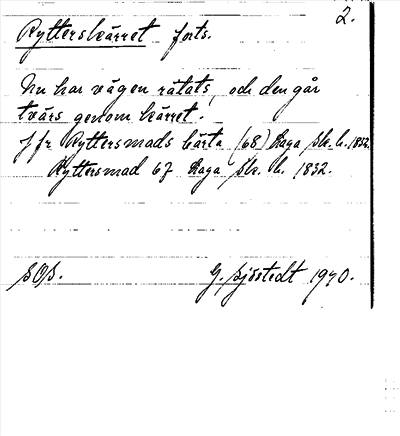 2.
Rytterskärret forts.
Nu har vägen rätats, och den går
tvärs genom kärret.
Jfr Ryttersmads bärta (68) Laga sk. h. 1832.
Ryttersmad 67 Laga sk. h. 1832.
SOS.
G. Sjöstedt 1940.